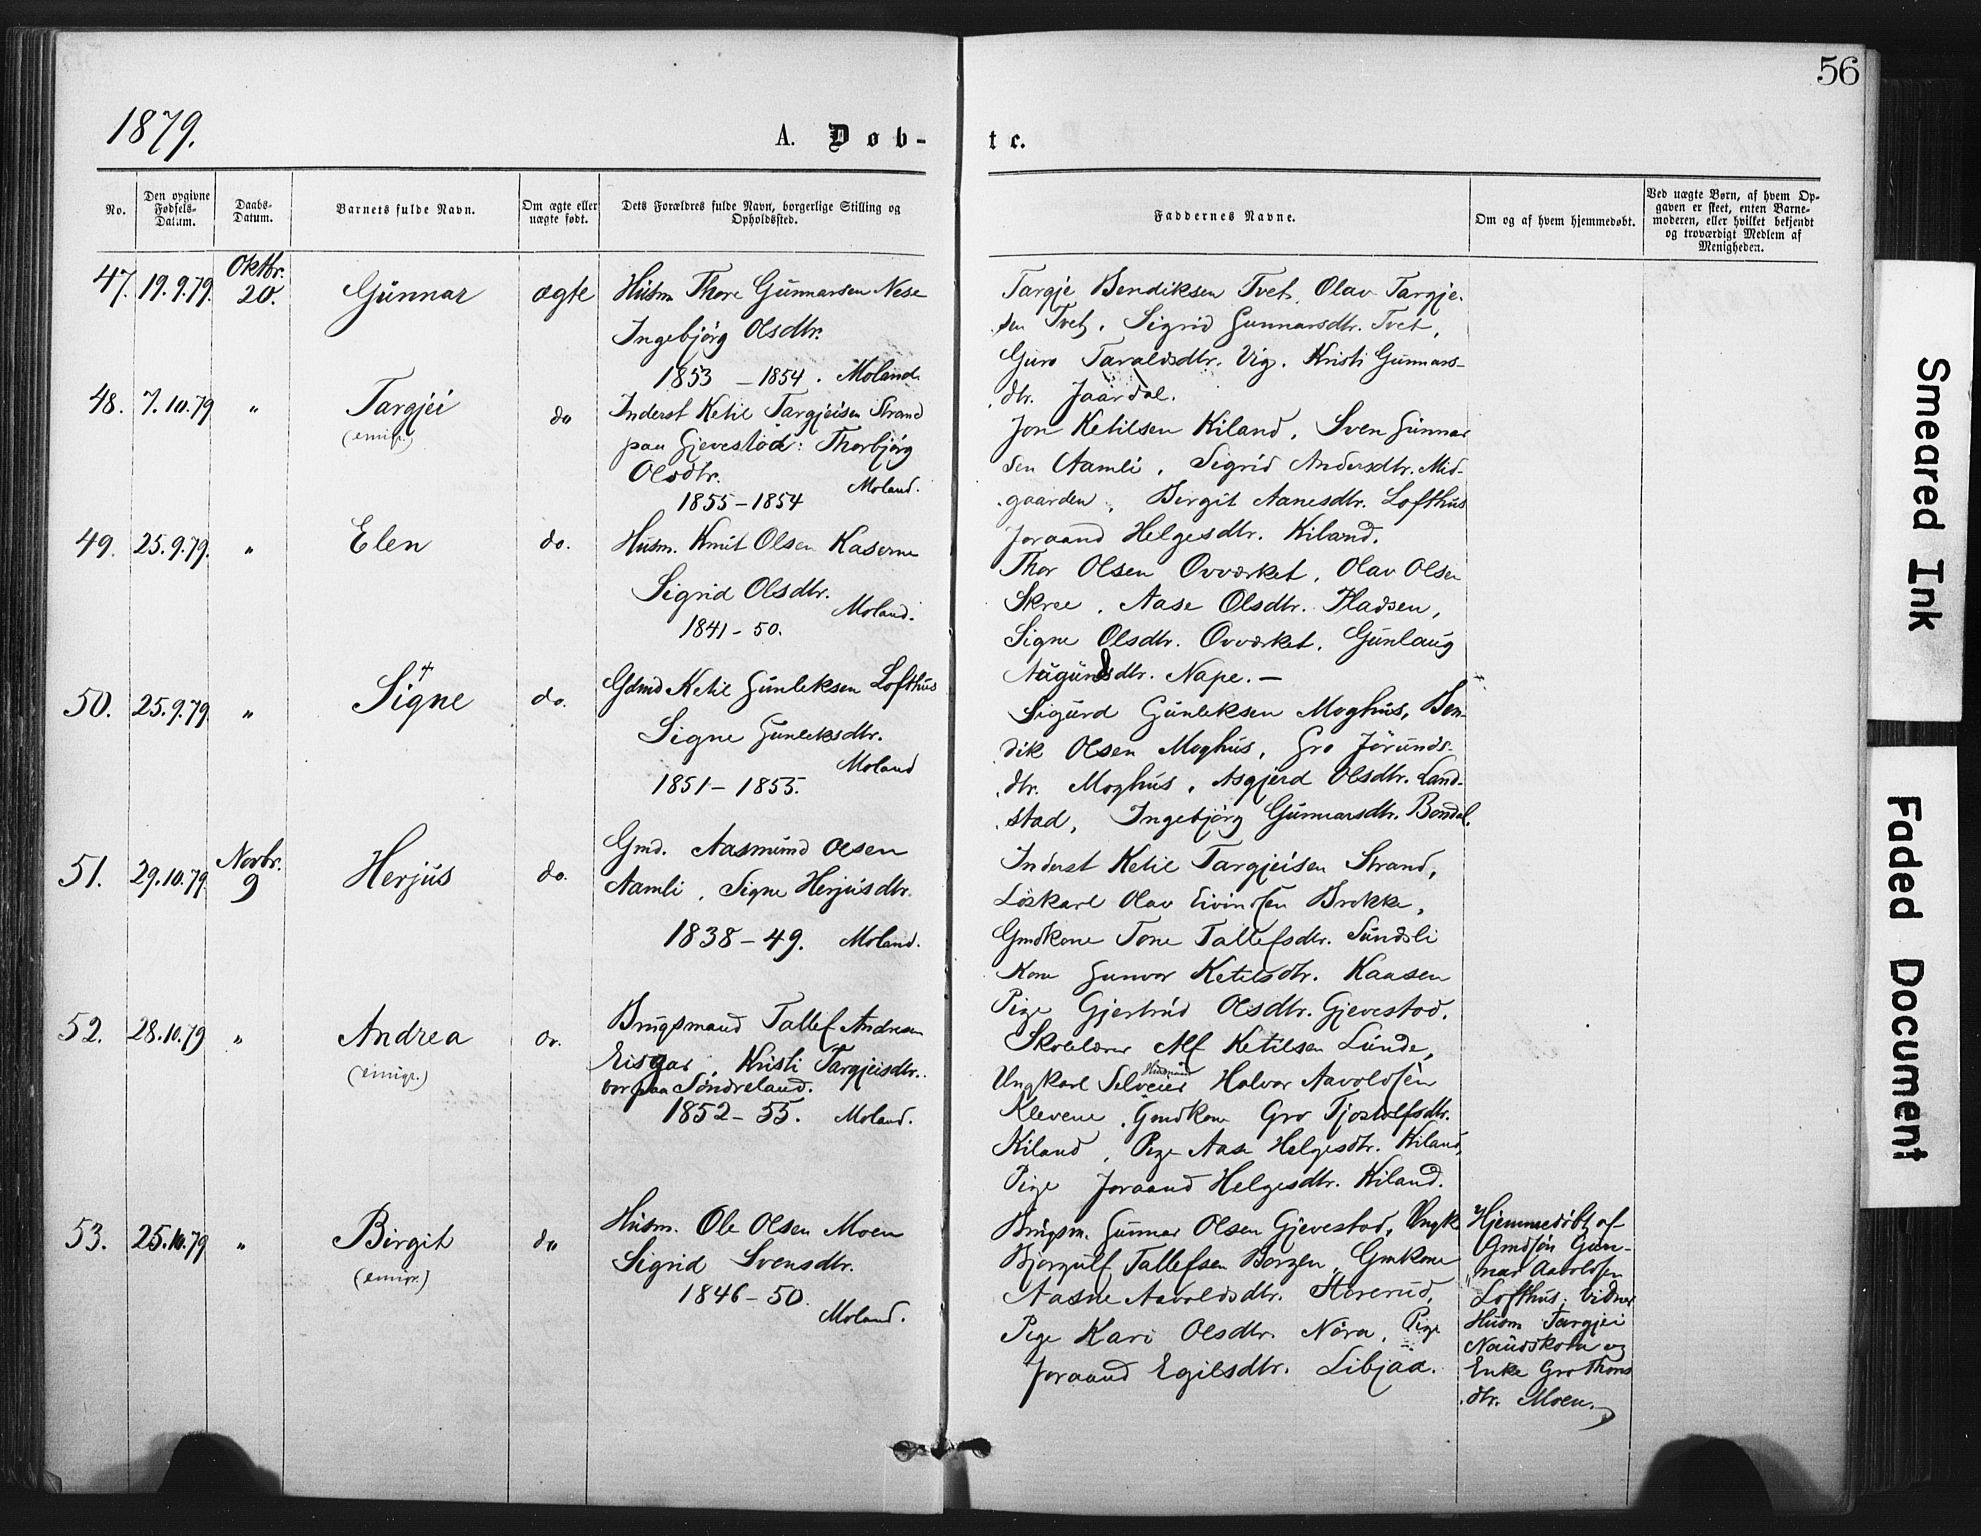 56
1879.
A. Døb-
te.
No.
Den opgivne Fødsels-Datum.
Daabs-Datum.
Barnets fulde Navn.
Om ægte eller uægte født.
Dets Forældres fulde Navn, borgerlige Stilling og Opholdssted.
Faddernes Navne.
Om og af hvem hjemmedøbt.
Ved uægte Børn, af hvem Op-
gaven er skeet, enten Barne-
moderen, eller hvilket bekjendt
og troværdigt Medlem af
Menigheden.
47. 19.9.79. Oktbr. 20. Gunnar ægte
Husm Thore Gunnarsen Nese
Ingebjørg Olsdtr.
1853 – 1854. Moland
Targje Bendiksen Tvet, Olav Targje-
sen Tvet, Sigrid Gunnarsdtr. Tvet,
Guro Taraldsdtr. Vig. Kristi Gunnars-
dtr. Jaardal.
48. 7.10.79 " Targjei do
(emigr.)
Inderst Ketil Targjeisen Strand
paa Gjevestad: Thorbjørg
Olsdtr.
Moland.
1855 – 1854
Jon Ketilsen Kiland, Sven Gunnar
sen Aamli, Sigrid Andersdtr. Mid-
gaarden, Birgit Aanesdtr. Lofthus
Joraand Helgesdtr. Kiland.
49. 25.9.79. " Elen do.
Husm. Knut Olsen Kaserne
Sigrid Olsdtr.
Moland.
1841 – 50.
Thor Olsen Ovværket, Olav Olsen
Skree, Aase Olsdtr. Pladsen,
Signe Olsdtr. Ovværket, Gunlaug
Augundsdtr. Nape. –
50. 25.9.79 " Signe do.
Gdmd Ketil Gunleksen Lofthus
Signe Gunleksdtr.
Moland
1851 – 1855.
Sigurd Gunleksen Moghus, Ben-
dik Olsen Moghus, Gro Jørunds-
dtr. Moghus, Asgjerd Olsdtr. Land-
stad, Ingebjørg Gunnarsdtr. Bondal.
51. 29.10.79. Novbr. 9 Herjus do.
Gmd. Aasmund Olsen
Aamli, Signe Herjusdtr.
1838 – 49. Moland.
Inderst Ketil Targjeisen Strand,
Løskarl Olav Eivindsen Brokke,
Gmdkone Tone Tallefsdtr. Sundsli
Kone Gunvor Ketilsdtr. Kaasen
Pige Gjertrud Olsdtr. Gjevestad.
52. 28.10.79 " Andrea do.
(emigr.)
Brugsmand Tallef Andresen
Eisgar, Kristi Targjeisdtr.
bor paa Søndreland.
1852 – 55. Moland.
Skolelærer Alf Ketilsen Lunde,
Ungkarl Halvor Aavoldsen
Klevene, Gmdkone Gro Tjostolfsdtr.
Kiland, Pige Aase Helgesdtr. Kiland,
Pige Joraand Helgesdtr. Kiland.
53. 25.10.79 " Birgit do
(emigr.)
Husm. Ole Olsen Moen
Sigrid Svensdtr.
1846 – 50.
Moland.
Brugsm. Gunnar Olsen Gjevestad, Ungk
Bjørgulf Tallefsen Borgen, Gmkone
Aasne Aavoldsdtr. Stererud,
Pige Kari Olsdtr. Nøra, Pige
Joraand Egilsdtr. Libjaa.
Hjemmedøbt af
Gmdsøn Gun-
nar Aavoldsen
Lofthus; Vidner
Husm Targjei
Naudskota og
Enke Gro Thors
dtr. Moen.
Smeared Ink
Faded Document